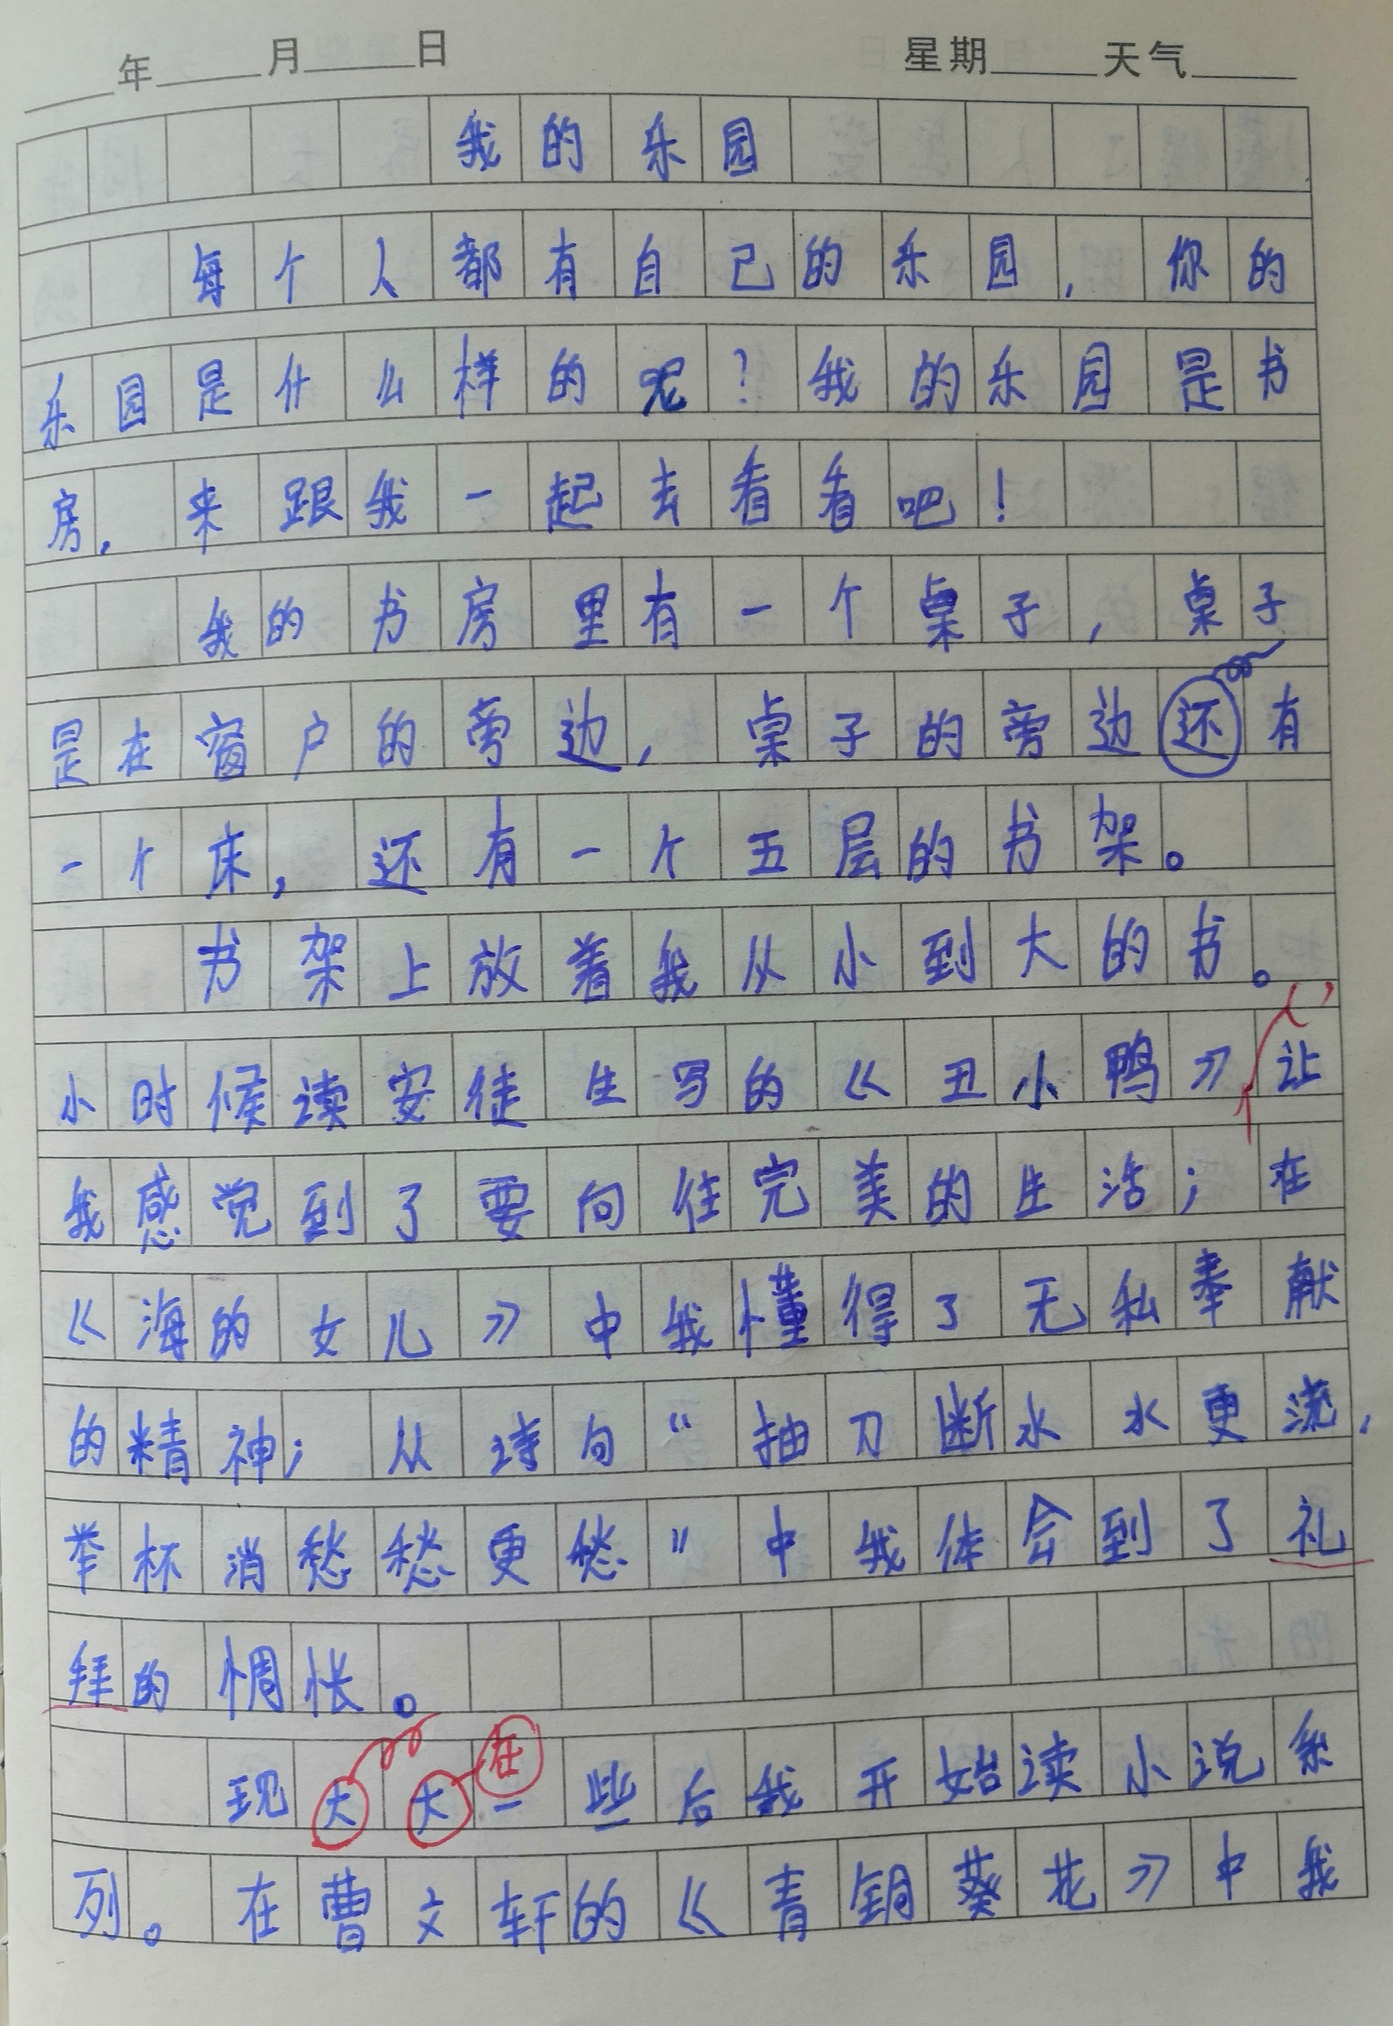 年 月 日 星期 天气
我的乐园
每个人都有自己的乐园，你的
乐园是什么样的呢？我的乐园是书
房，来跟我一起去看看吧！
我的书房里有一个桌子，桌子
是在窗户的旁边，桌子的旁边还有
一个床，还有一个五层的书架。
书架上放着我从小到大的书。
小时候读安徒生写的《丑小鸭》，让
我感觉到了要向往完美的生活；在
《海的女儿》中我懂得了无私奉献
的精神；从诗句“抽刀断水水更流，
举杯消愁愁更愁”中我体会到了礼
拜的惆怅。
在
现大大一些后我开始读小说系
列。在曹文轩的《青铜葵花》中我